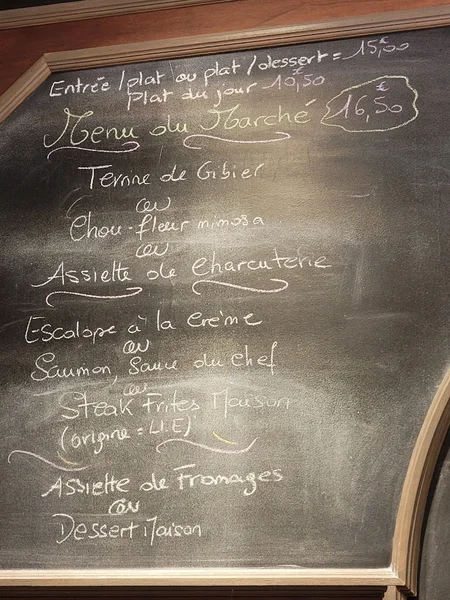 Entrée / plat ou plat / dessert = 15,00 €
Plat du jour 10,50 €
Menu du Marché 16,50 €
Terrine de Gibier
ou
Chou-fleur mimosa
ou
Assiette de Charcuterie
Escalope à la Crème
ou
Saumon, Sauce du chef
ou
Steak Frites Maison
(origine = U.E)
Assiette de Fromages
ou
Dessert Maison